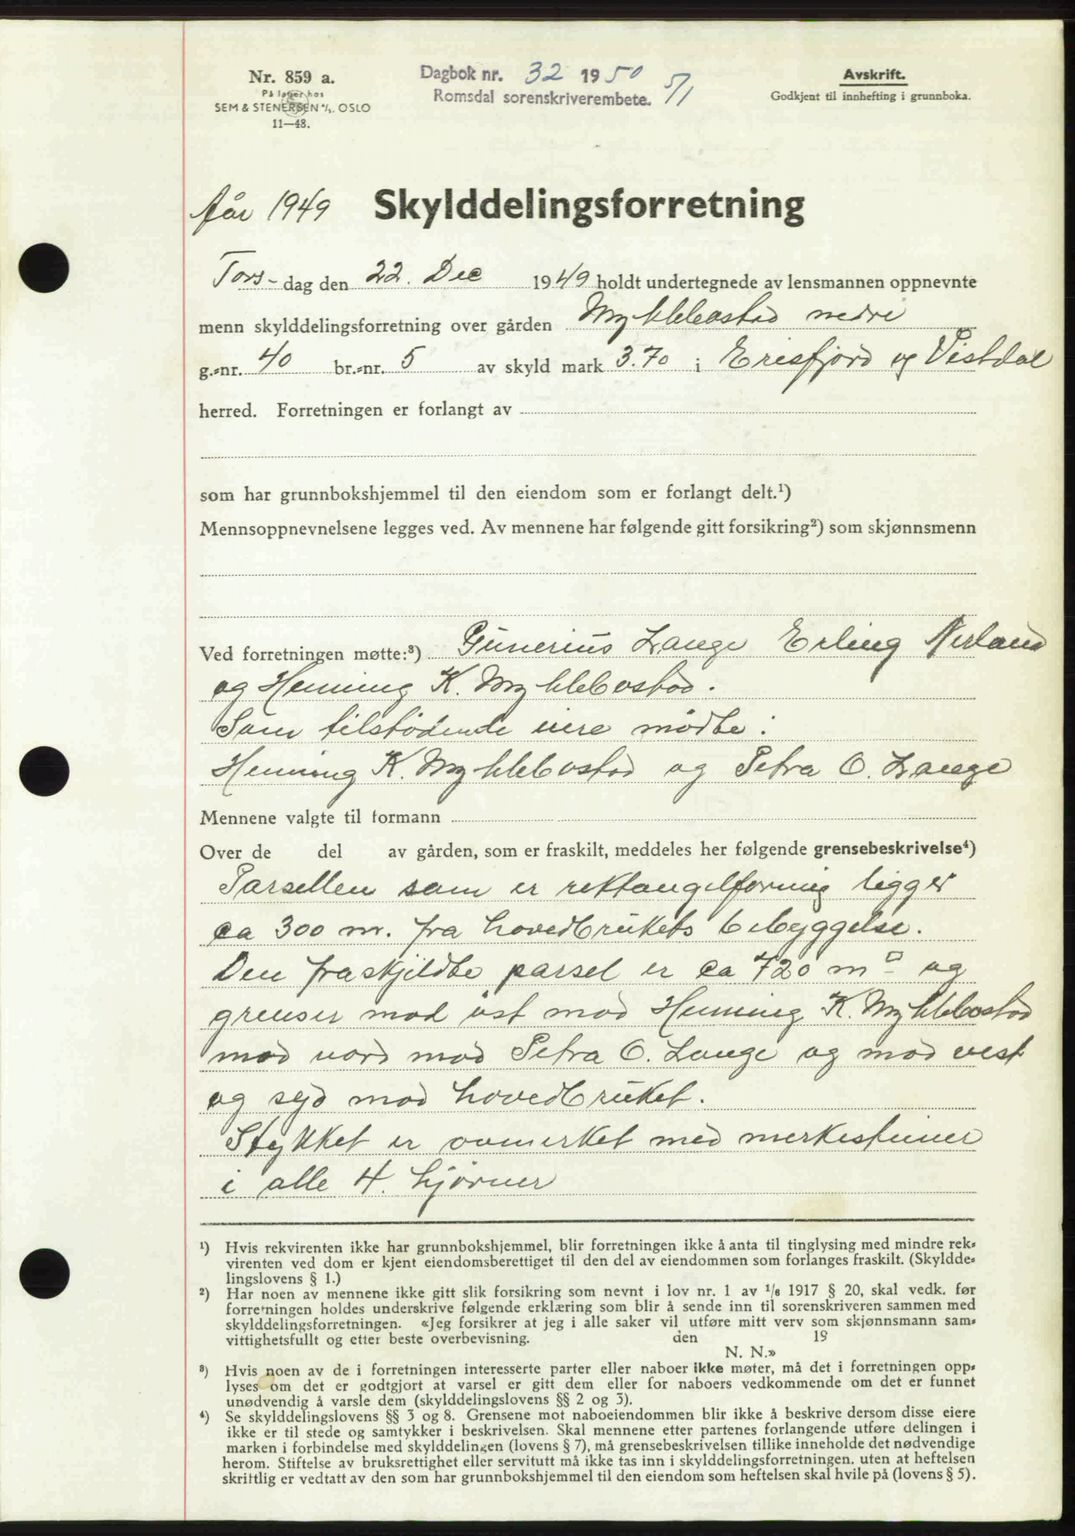 Nr. 859 a.
På lager hos
SEM & STENERSEN A/S. OSLO
11—48.
Dagbok nr. 32 1950 5/1
Romsdal sorenskriverembete.
Avskrift.
Godkjent til innhefting i grunnboka.
År 1949 Skylddelingsforretning
Tors-dag den 22. Dec 1949 holdt undertegnede av lensmannen oppnevnte
menn skylddelingsforretning over gården Myklebostad nedre
g.-nr. 40 br.-nr. 5 av skyld mark 3.70 i Erisfjord og Vistdal
herred. Forretningen er forlangt av
som har grunnbokshjemmel til den eiendom som er forlangt delt.¹)
Mennsoppnevnelsene legges ved. Av mennene har følgende gitt forsikring²) som skjønnsmenn
Ved forretningen møtte:³) Gunerius Lange Erling Nerland
og Henning K. Myklebostad.
Som tilstødende eiere mødte:
Henning K. Myklebostad og Petra O. Lange
Mennene valgte til formann
Over de del av gården, som er fraskilt, meddeles her følgende grensebeskrivelse⁴)
Parsellen som er rektangelformig ligger
ca 300 m. fra hovedbrukets bebyggelse.
Den fraskjildte parsel er ca 720 m□ og
grenser mod øst mod Henning K. Myklebostad
mod nord mod Petra O. Lange og mod vest
og syd mod hovedbruket.
Stykket er avmerket med merkesteiner
i alle 4. hjørner
¹) Hvis rekvirenten ikke har grunnbokshjemmel, blir forretningen ikke å anta til tinglysing med mindre rek-
virenten ved dom er kjent eiendomsberettiget til den del av eiendommen som forlanges fraskilt. (Skyldde-
lingslovens § 1.)
²) Har noen av mennene ikke gitt slik forsikring som nevnt i lov nr. 1 av 1/6 1917 § 20, skal vedk. før
forretningen holdes underskrive følgende erklæring som blir å sende inn til sorenskriveren sammen med
skylddelingsforretningen. «Jeg forsikrer at jeg i alle saker vil utføre mitt verv som skjønnsmann sam-
vittighetsfullt og etter beste overbevisning. den 19
N. N.»
³) Hvis noen av de i forretningen interesserte parter eller naboer ikke møter, må det i forretningen opp-
lyses om det er godtgjort at varsel er gitt dem eller for naboers vedkommende om det er funnet
unødvendig å varsle dem (skylddelingslovens §§ 2 og 3).
⁴) Se skylddelingslovens §§ 3 og 8. Grensene mot naboeiendommen blir ikke å beskrive dersom disse eiere
ikke er til stede og samtykker i beskrivelsen. Skal mennene etter partenes forlangende utføre delingen i
marken i forbindelse med skylddelingen (lovens § 7), må grensebeskrivelsen tillike inneholde det nødvendige
herom. Stiftelse av bruksrettighet eller servitutt må ikke tas inn i skylddelingsforretningen. uten at heftelsen
skriftlig er vedtatt av den som har grunnbokshjemmel til den eiendom som heftelsen skal hvile på (lovens § 5).